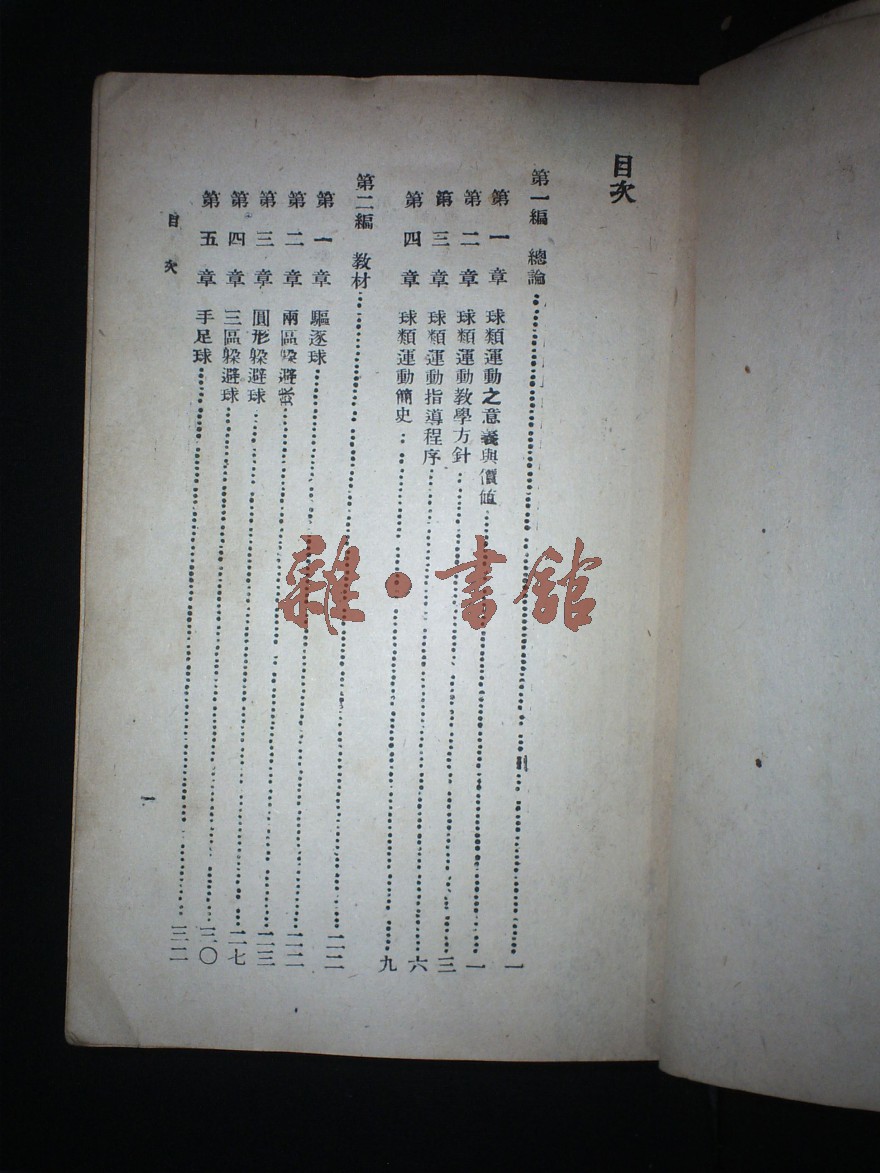 目次
第一編 總論……一
第一章 球類運動之意義與價值……一
第二章 球類運動教學方針……三
第三章 球類運動指導程序……六
第四章 球類運動簡史……九
第二編 教材……二二
第一章 驅逐球……二二
第二章 兩區躱避球……二三
第三章 圓形躱避球……二七
第四章 三區躱避球……三〇
第五章 手足球……三二
目次
一
雜·書館